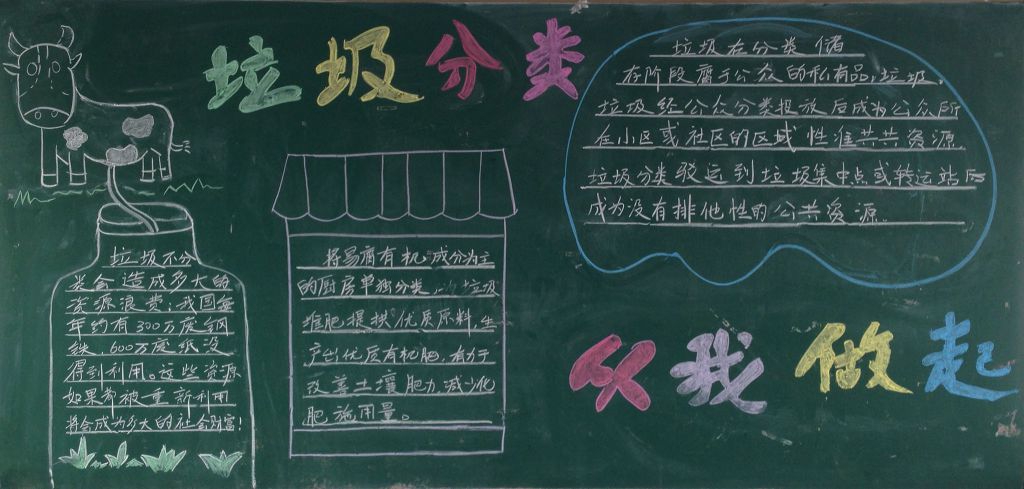 垃圾分类
垃圾在分类储
存阶段属于公众的私有品,垃圾,
垃圾经公众分类投放后成为公众所
在小区或社区的区域性准共共资源,
垃圾分类驳运到垃圾集中点或转运站后
成为没有排他性的公共资源。
垃圾不分
类会造成多大的
资源浪费:我国每
年约有300万废钢
铁,600万废纸没
得到利用。这些资源
如果都被重新利用
将会成为多大的社会财富!
将易腐有机成分为主
的厨房单独分类,为垃圾
堆肥提供优质原料,生
产出优质有机肥,有力于
改善土壤肥力,减少化
肥施用量。
从我做起